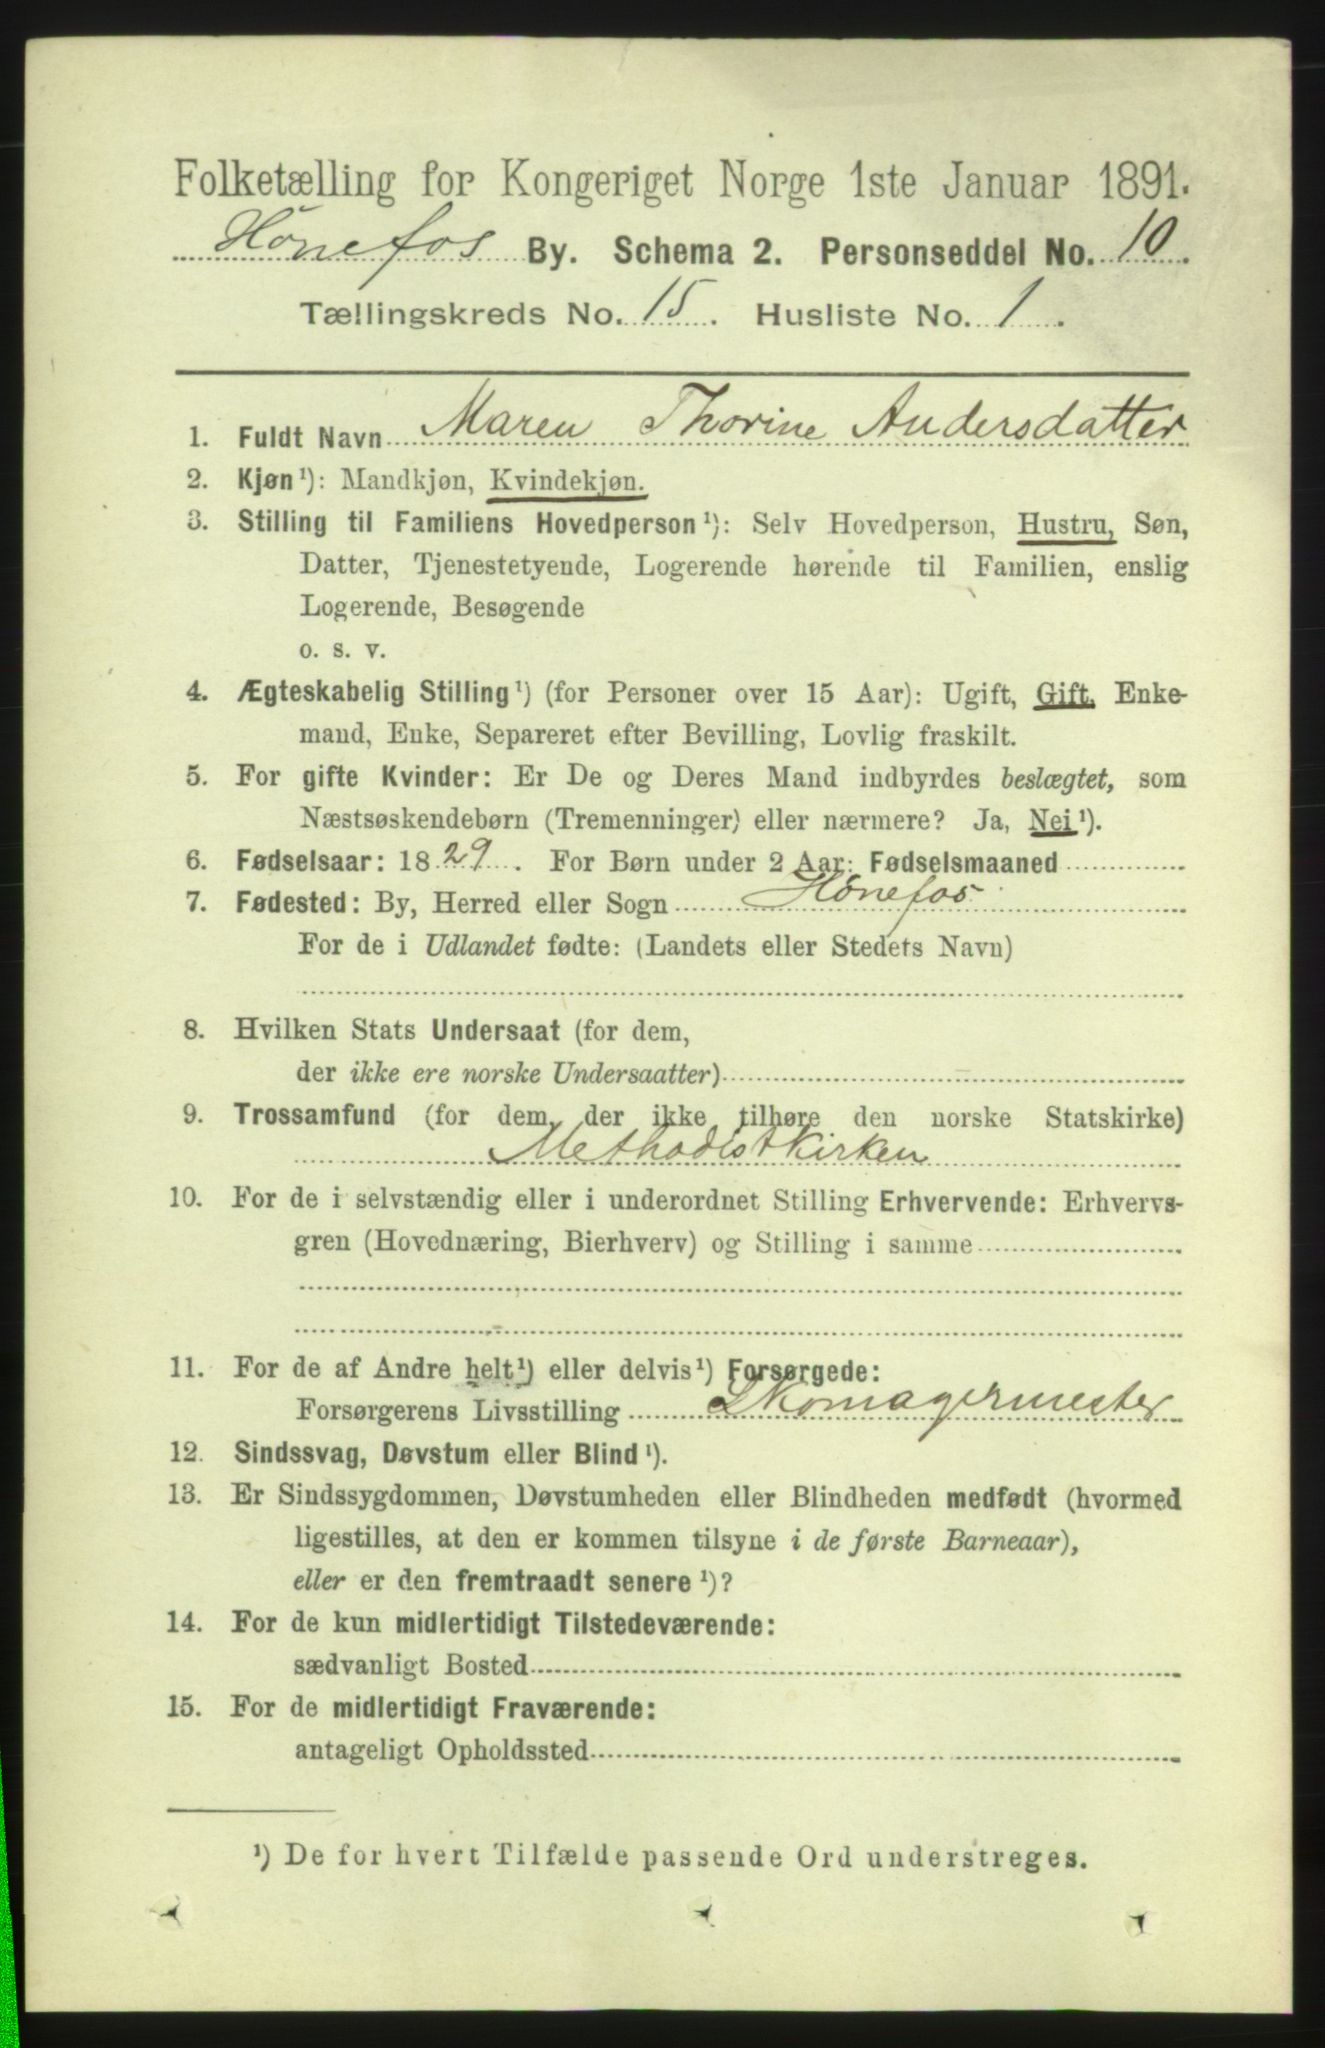 Folketælling for Kongeriget Norge 1ste Januar 1891.
Hönefos By. Schema 2. Personseddel No. 10.
Tællingskreds No. 15. Husliste No. 1.
1. Fuldt Navn Maren Thorine Andersdatter
2. Kjøn¹): Mandkjøn, Kvindekjøn.
3. Stilling til Familiens Hovedperson¹): Selv Hovedperson, Hustru, Søn,
Datter, Tjenestetyende, Logerende hørende til Familien, enslig
Logerende, Besøgende
o. s. v.
4. Ægteskabelig Stilling¹) (for Personer over 15 Aar): Ugift, Gift, Enke-
mand, Enke, Separeret efter Bevilling, Lovlig fraskilt.
5. For gifte Kvinder: Er De og Deres Mand indbyrdes beslægtet, som
Næstsøskendebørn (Tremenninger) eller nærmere? Ja, Nei¹).
6. Fødselsaar: 1829. For Børn under 2 Aar: Fødselsmaaned
7. Fødested: By, Herred eller Sogn Hönefos
For de i Udlandet fødte: (Landets eller Stedets Navn)
8. Hvilken Stats Undersaat (for dem,
der ikke ere norske Undersaatter)
9. Trossamfund (for dem, der ikke tilhøre den norske Statskirke)
Methodistkirken
10. For de i selvstændig eller i underordnet Stilling Erhvervende: Erhvervs-
gren (Hovednæring, Bierhverv) og Stilling i samme
11. For de af Andre helt¹) eller delvis¹) Forsørgede:
Forsørgerens Livsstilling Skomagermester
12. Sindssvag, Døvstum eller Blind¹).
13. Er Sindssygdommen, Døvstumheden eller Blindheden medfødt (hvormed
ligestilles, at den er kommen tilsyne i de første Barneaar),
eller er den fremtraadt senere¹)?
14. For de kun midlertidigt Tilstedeværende:
sædvanligt Bosted
15. For de midlertidigt Fraværende:
antageligt Opholdssted
¹) De for hvert Tilfælde passende Ord understreges.